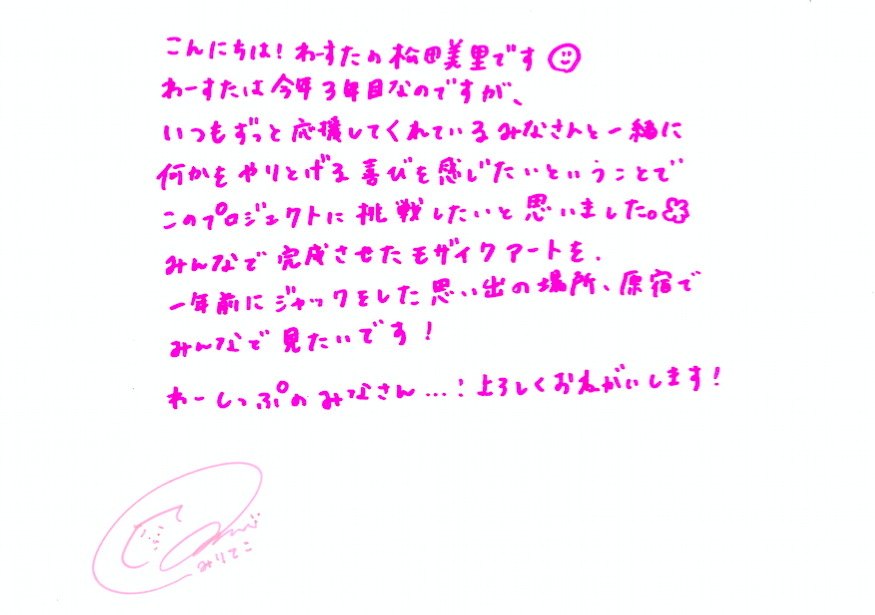 こんにちは！わーすたの松田美里です
わーすたは今年3年目なのですが、
いつもずっと応援してくれているみなさんと一緒に
何かをやりとげる喜びを感じたいということで
このプロジェクトに挑戦したいと思いました。
みんなで完成させたモザイクアートを、
一年前にジャックをした思い出の場所、原宿で
みんなで見たいです！
わーしっぷのみなさん…！よろしくおねがいします！
みりてこ